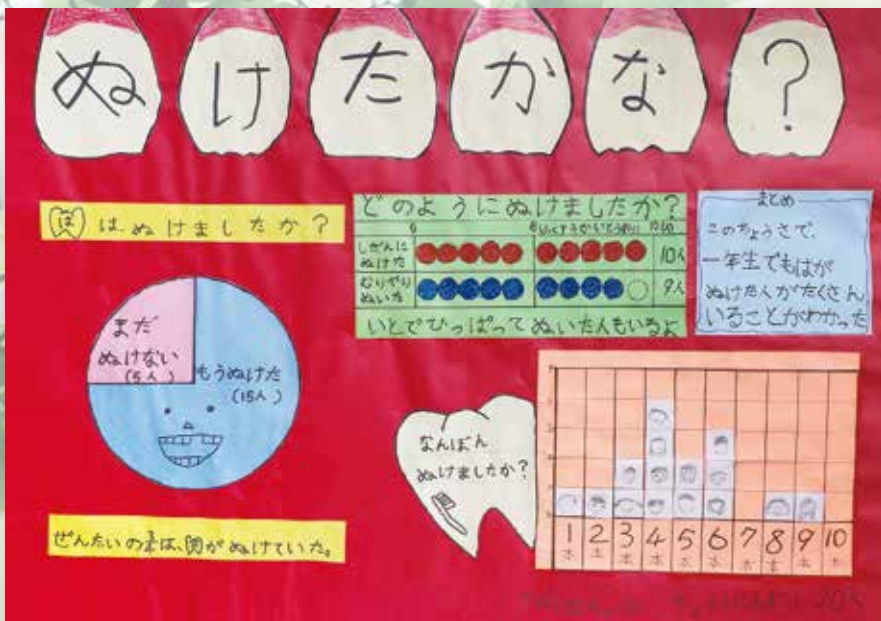 ぬけたかな?
ははぬけましたか?
まだ
ぬけない
(5人)
もうぬけた
(15人)
ぜんたいの¾は、歯がぬけていた。
どのようにぬけましたか?
しぜんに
ぬけた
10人
むりやり
ぬいた
9人
いとでひっぱってぬいた人もいるよ
まとめ
このちょうさで、
一年生でもはが
ぬけた人がたくさん
いることがわかった
なんぼん
ぬけましたか?
1 2 3 4 5 6 7 8 9 10
本 本 本 本 本 本 本 本 本 本